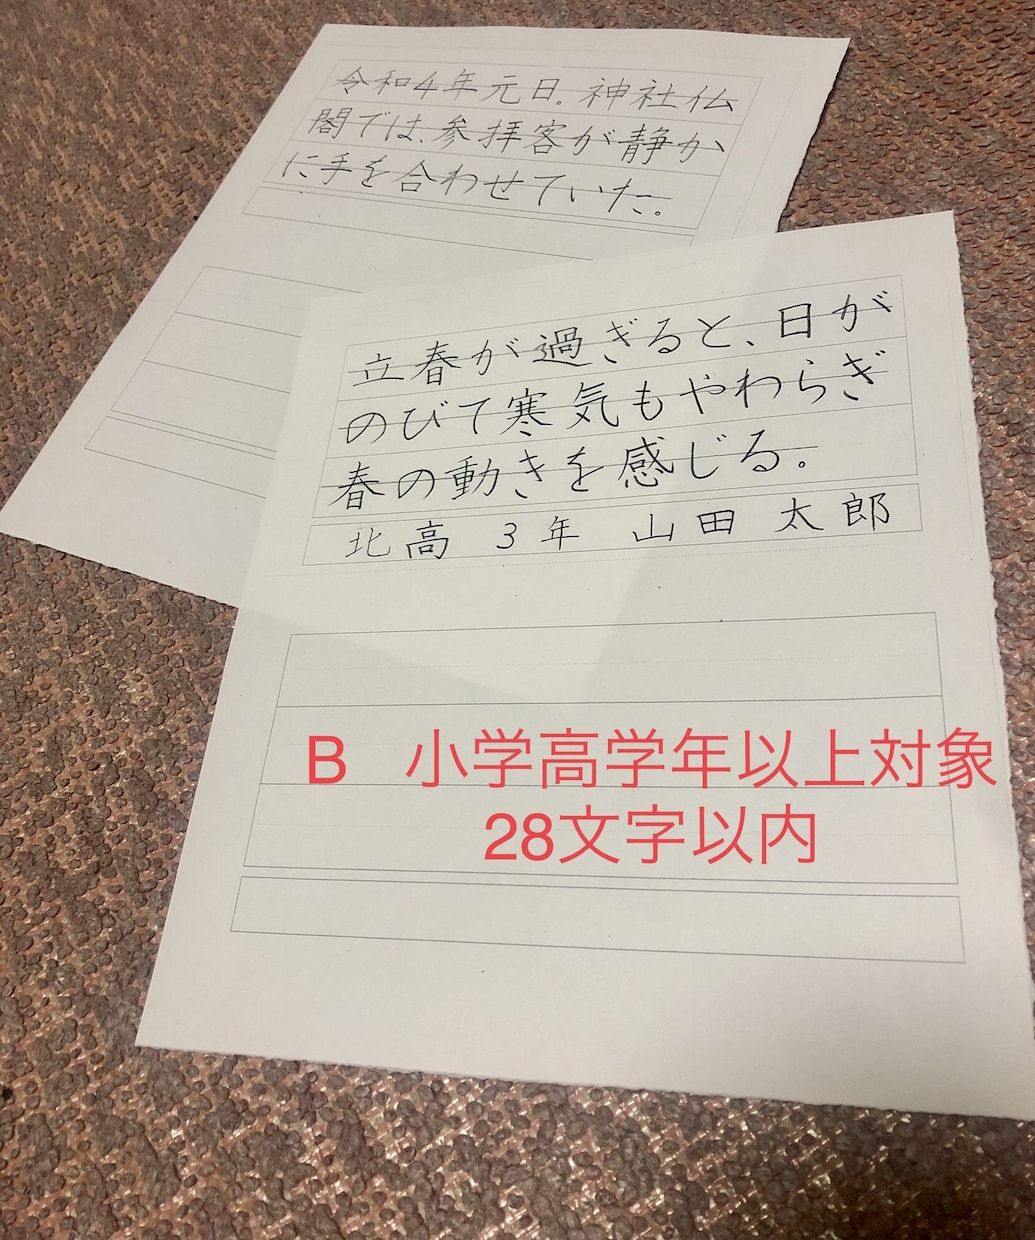 令和4年元日。神社仏
閣では、参拝客が静か
に手を合わせていた。
立春が過ぎると、日が
のびて寒気もやわらぎ
春の動きを感じる。
北高 3年 山田 太郎
B 小学高学年以上対象
28文字以内